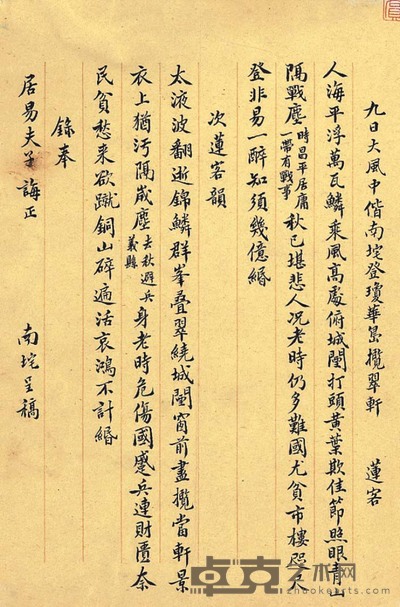 九日大風中偕南垞登瓊華島攬翠軒 蓮客
人海平浮萬瓦鱗乘風高處俯城闉打頭黃葉欺佳節照眼青山
隔戰塵時昌平居庸一帶有戰事秋已堪悲人况老時仍多難國尤貧市樓咫尺
登非易一醉知須幾億緡
次蓮客韻
太液波翻逝錦鱗群峯疊翠繞城闉窗前盡攬當軒景
衣上猶污隔歲塵去秋避兵義縣身老時危傷國蹙兵連財匱奈
民貧愁来欲蹴銅山碎遍活哀鴻不計緡
錄奉
居易夫子誨正 南垞呈稿
卓克艺术网